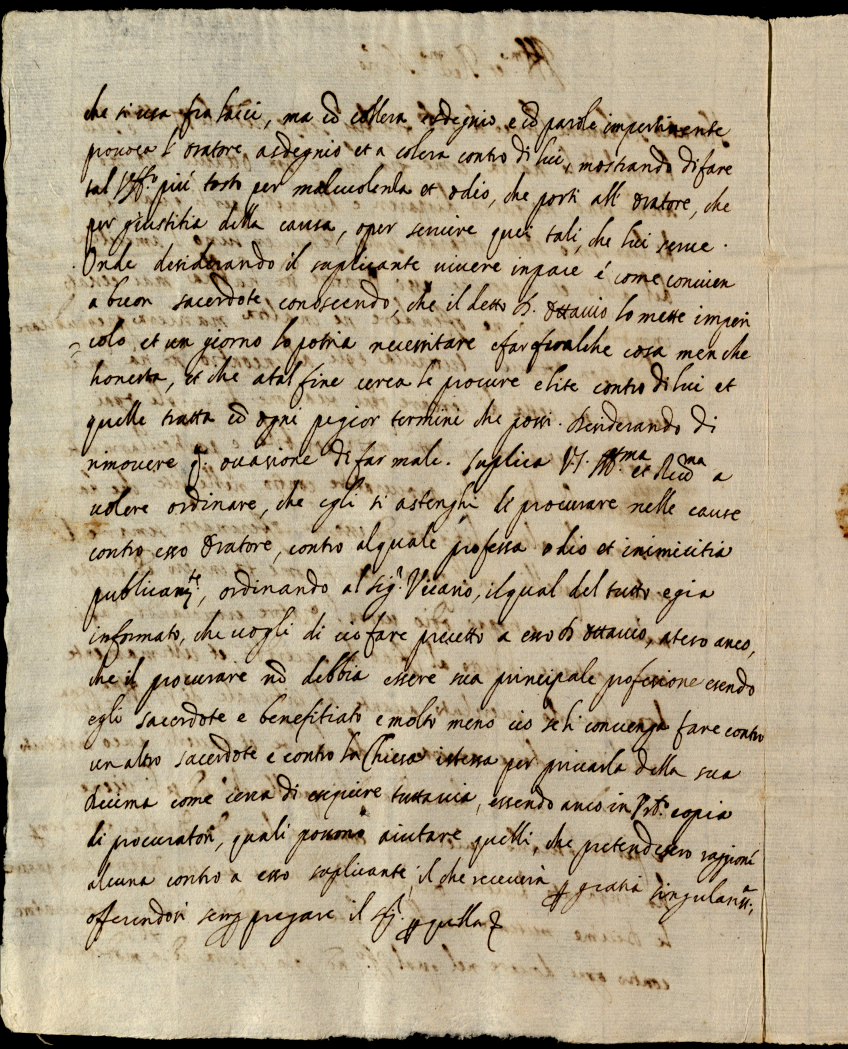 che si usa fra laici, ma cõ collera sdegnio, e cõ parole impertinente
provoca l'oratore asdegnio et a colera contro di lui, mostrando difare
tal Uff.º piú tosto per malevolenta et odio, che porti all'oratore, che
per giustitia della causa, oper servire quei tali, che lui serve.
Onde desiderando il suplicante vivere inpace é come convien
a buon sacerdote, conoscendo, che il detto D. Ottavio lo mette imperi
colo et un giorno lo potria necessitare afar qualche cosa men che
honesta, et che atal fine cerca le procure elite contro di lui et
quelle tratta cõ ogni pegior termine che possi. Desiderando di
rimovere ogni occasione di far male. Suplica V.S. Ill.ma et R.ma a
volere ordinare, che egli si astenghi di procurare nelle cause
contro esso Oratore, contro alquale professa odio et inimicitia
publicam.te, ordinando al Sig.r Vicario, ilqual del tutto egia
informato, che vogli di cio fare precetto a esso D. Ottavio, ateso anco,
che il procurare nõ debbia essere sua principale profesione esendo
egli sacerdote e benefitiato e molto meno cio se li convenga fare contro
un altro sacerdote e contro la Chiesa istessa per privarla della sua
decima come cerca di esequire tuttavia, essendo anco in copia
di procuratori, quali possono aiutare quelli, che pretendessero raggioni
alcuna contro a esso suplicante, il che recevera p gratia singularis.ma,
offerendosi semp pregare il S.r p quella